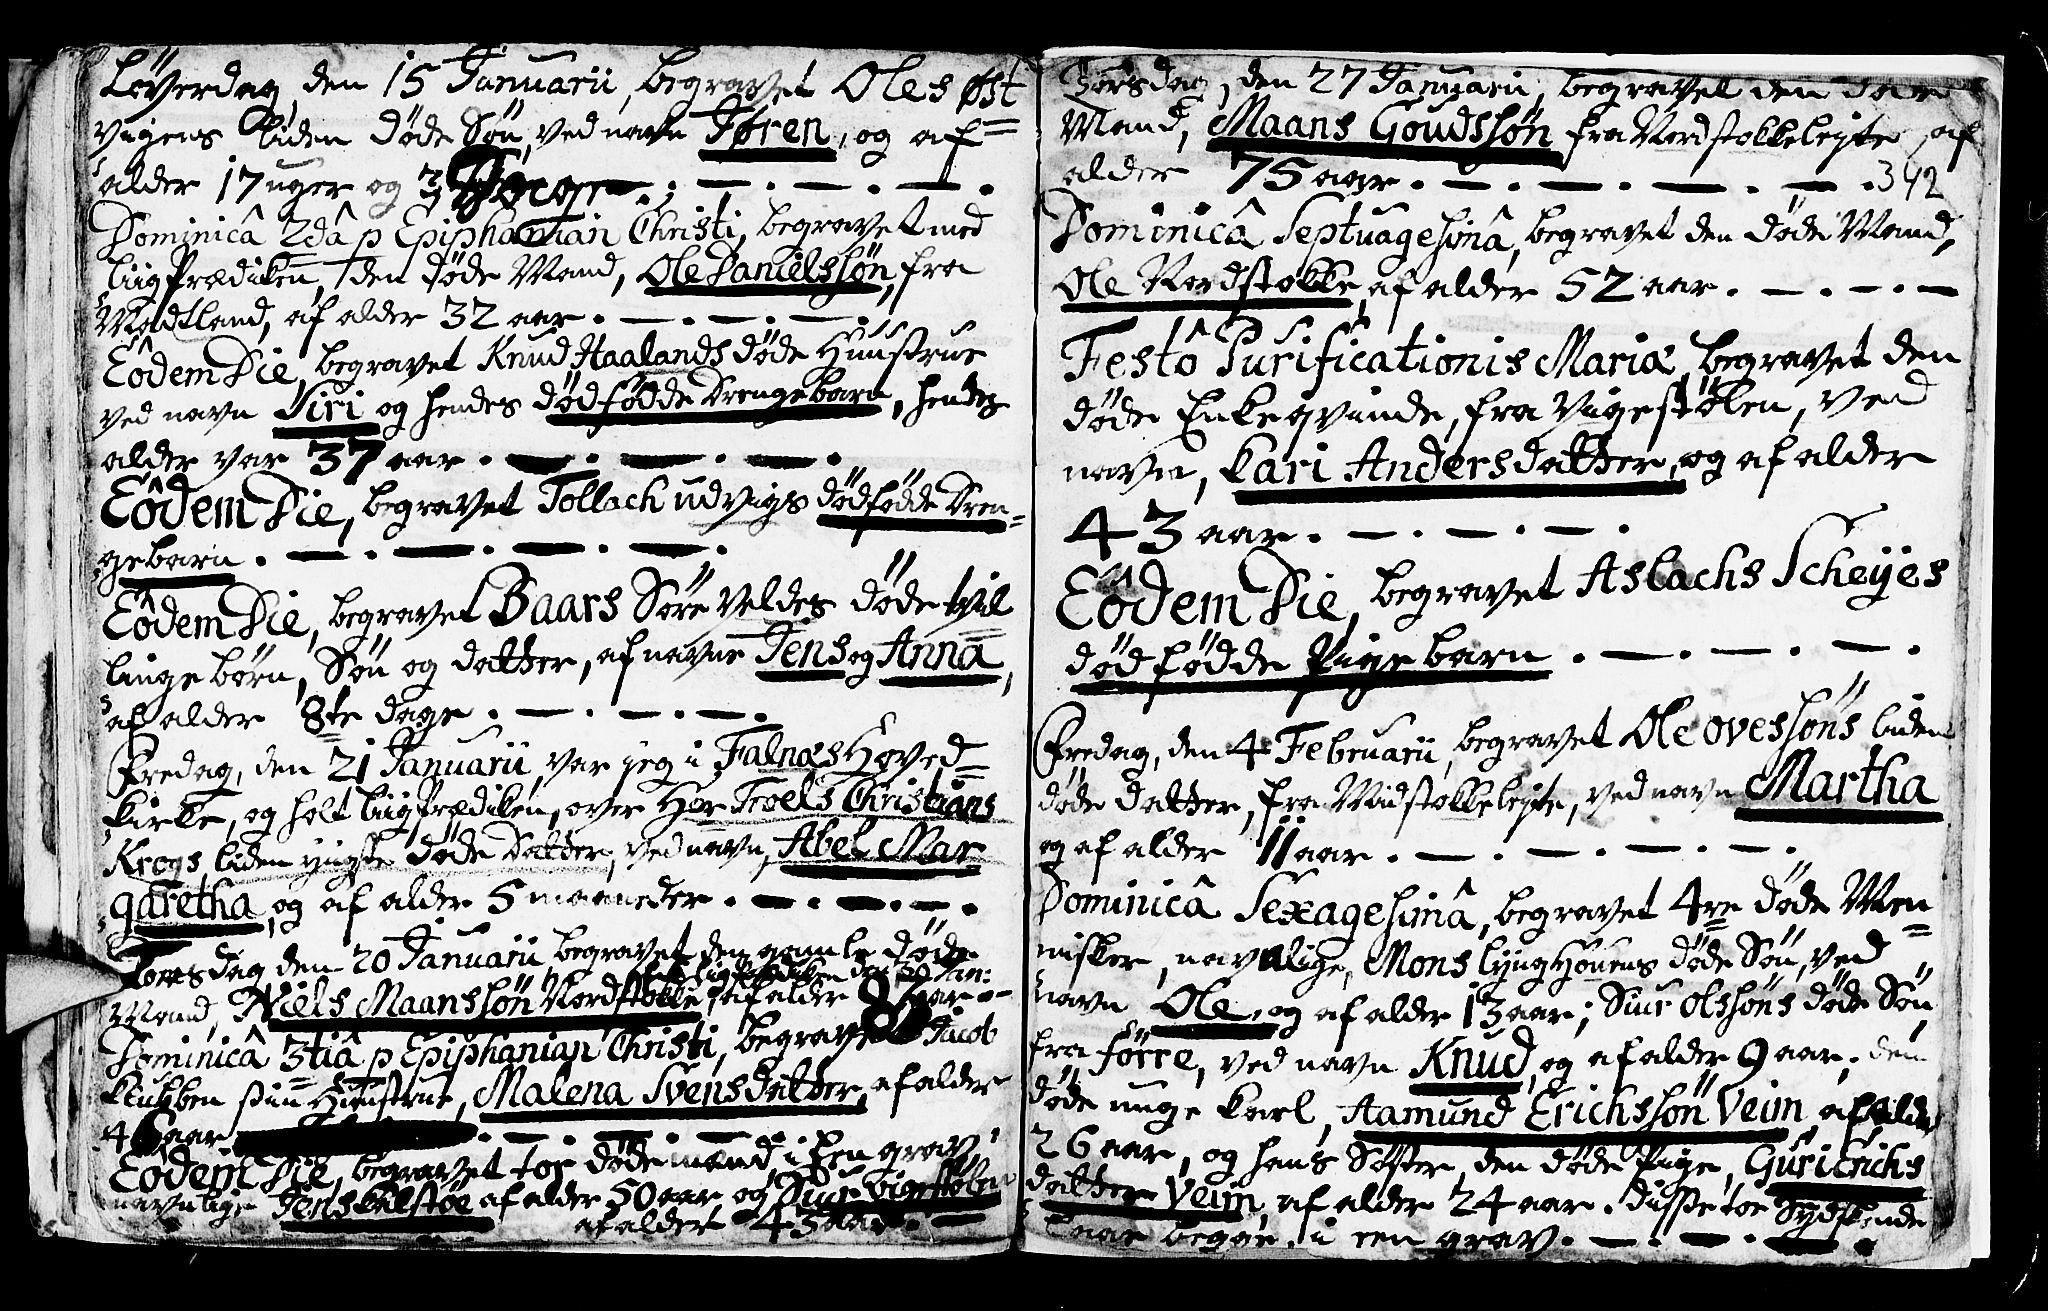 Löverdag, den 15 Januarii, begravet Oles Øst
vigens liden døde Søn, ved navn Jøren, og af=
alder 17 uger og 3 Dage.
Dominicâ 2dâ p Epiphanian Christi, begravet med
Liigprædiken, den døde Mand, Ole Danielssøn, fra
Wadtland, af alder 32 aar.
Eôdem Die, begravet Knud Haalands døde Hüüstrue
ved navn Siri og hendes dödfödde Drengebarn, hendes
alder var 37 aar.
Eôdem Die, begravet Tollach udvigs dödfödde Dren=
gebarn.
Eôdem Die, begravet Baars Søre Veldes døde tvil
linge börn, Søn og datter, af navne Jens og Anna,
af alder 8te dage.
Fredag, den 21 Januarii, var jeg i Falnæs Hoved=
kirke, og holt Liigprædiken, over Hør Troels Christians
Krogs liden yngste døde Datter, ved navn, Abel Mar
garetha, og af alder 5 maaneder.
Torsdag den 20 Januarii begravet den gamle døde
den 30 Jan:
Mand, Niels Maanssøn Nordstokke, af alder aar
Dominicâ 3tiâ p Epiphanian Christi, begravet Jacob
Klubben sin Hüüstrue, Malena Svensdatter, af alder
46 aar
Eôdem Die, begravet toe døde mænd, i een grav,
navnlig, Jens af alder 50 aar, og Siur Vigestølen
af alder 43 aar.
Torsdag, den 27 Januarii, begravet den døde
Mand, Maans Goudssøn fra Nordstokkelejte, af
alder 75 aar.
342
Dominicâ Septuagesimâ, begravet den døde Mand,
Ole Nordstokke, af alder 52 aar.
Festô Purificationis Mariæ, begravet den
døde Enkeqvinde, fra Vigestölen, ved
navn, Kari Andersdatter, og af alder
43 aar.
Eôdem Die, begravet Aslachs Scheÿes
dødfödde Pigebarn.
Fredag, den 4 Februarii, begravet Ole ovessøns liden
døde datter, fra Midstokkelejte, ved navn Martha
og af alder 11 aar.
Dominicâ Sexagesimâ, begravet 4re døde Men=
nisker, navnlige, Mons Lÿnghouens døde Søn, ved
navn Ole, og af alder 13 aar; Siur Olssøns døde Søn,
fra förre, ved navn Knud, og af alder 9 aar; den
døde unge Karl, Aamund Erichssøn Veim, af alder
26 aar, og hans Söster, den døde Pige, Guri Erichs
datter Veim, af alder 24 aar. disse toe Sydskende
begge i een grav.